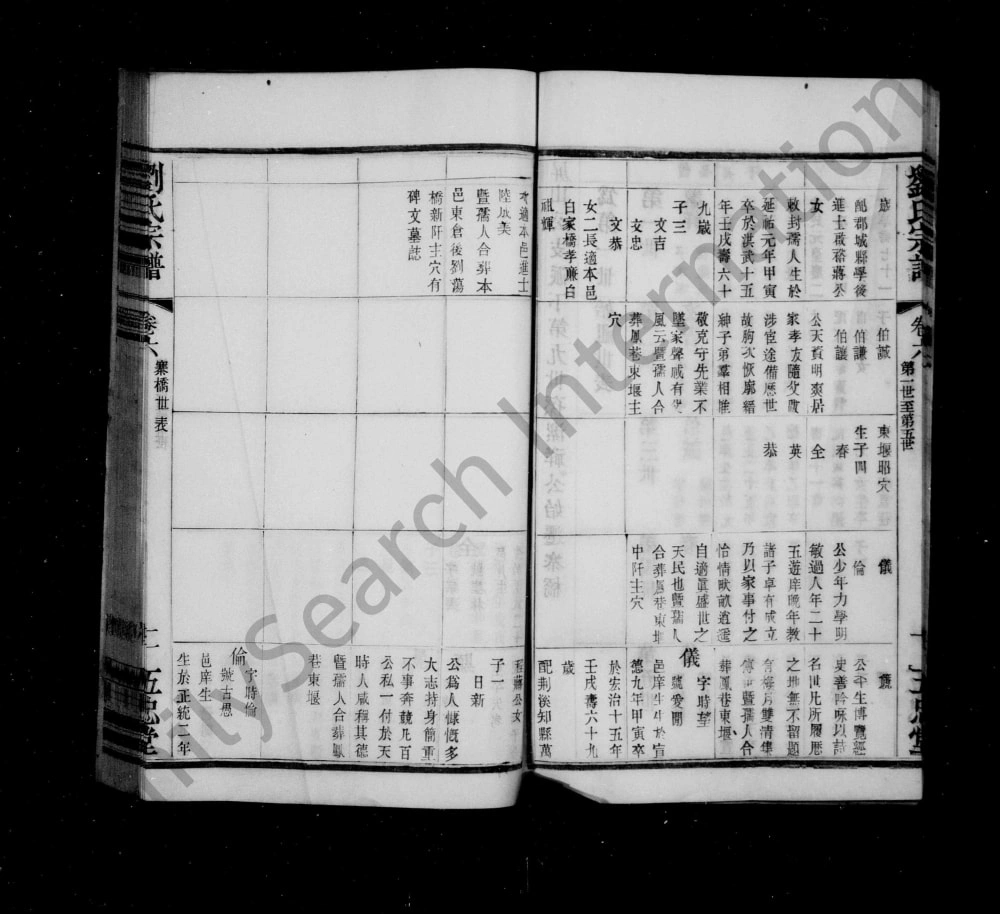 劉氏宗譜
卷六
第一世至第五世
五忠堂
邑郡城縣學後
進士啟裕蔣公
女
敕封孺人生於
延祐元年甲寅
卒於洪武十五
年壬戌壽六十
九歲
子三
文吉
文忠
文恭
女二長適本邑
白家橋孝廉白
祖輝
子伯誠
伯謙
伯讓
公天資明爽居
家孝友隨父
涉宦途備歷世
故胸次恢廓縉
紳子弟羣相推
敬克守先業不
墜家聲咸有
風云暨孺人合
葬鳳巷東堰主
穴
東堰昭穴
生子四
春
全
英
恭
儀
倫
公少年力學明
敏過人年二十
五遊庠晚年教
諸子卓有成立
乃以家事付之
怡情畎畝逍遙
自適眞盛世之
天民也暨孺人
合葬鳳巷東堰
中阡主穴
公平生博覽經
史善吟咏以詩
名世凡所履歷
之地無不留題
有梅月雙清集
傳世暨孺人合
葬鳳巷東堰
儀
字時望
號愛閒
邑庠生生於宣
德九年甲寅卒
於宏治十五年
壬戌壽六十九
歲
配荆溪知縣萬
次適本邑進士
陸成美
暨孺人合葬本
邑東倉後劉蕩
橋新阡主穴有
碑文墓誌
程蔣公女
子一
日新
公爲人慷慨多
大志持身龍重
不事奔競凡百
公私一付於天
時人咸稱其德
暨孺人合葬鳳
巷東堰
倫
字時倫
號古愚
邑庠生
生於正統二年
劉氏宗譜
卷六
寨橋世表
五忠堂
FamilySearch International